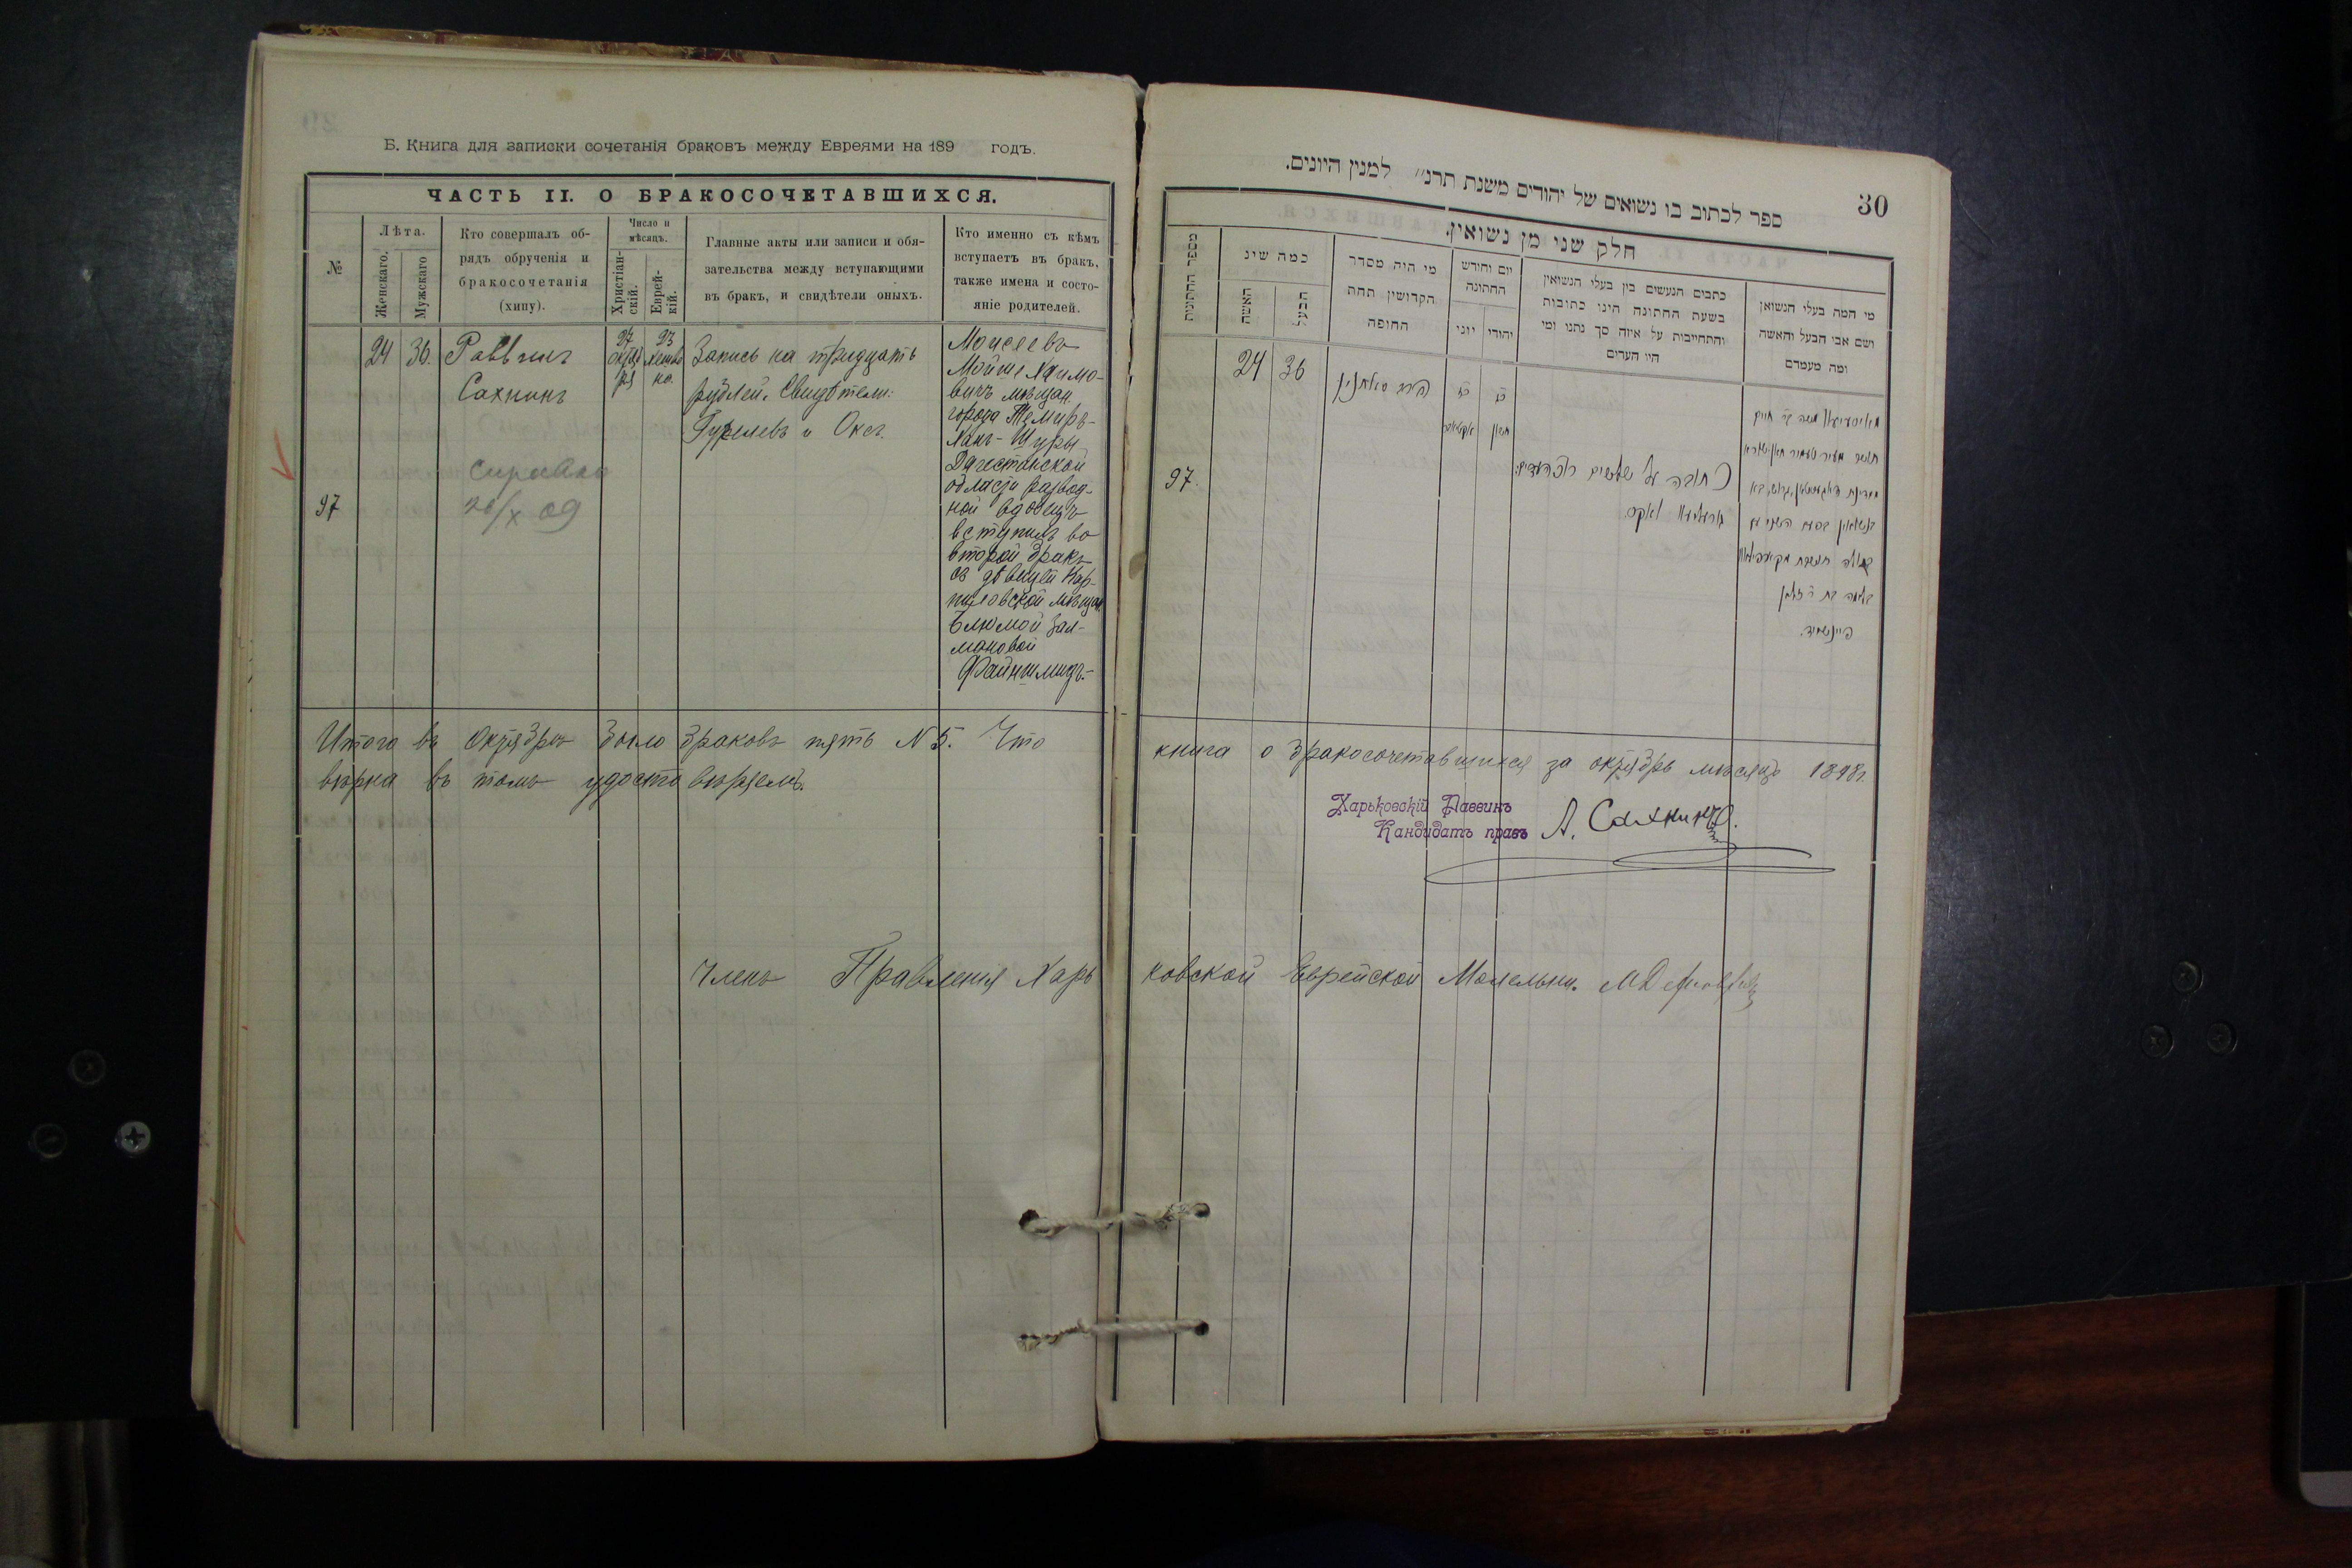 Б. Книга для записки сочетанія браковъ между Евреями на 189 годъ.
ЧАСТЬ II. О БРАКОСОЧЕТАВШИХСЯ.
№
Лѣта.
Женскаго.
Мужскаго
Кто совершалъ об-
рядъ обрученія и
бракосочетанія
(хипу).
Число и
мѣсяцъ.
Христіан-
скій.
Еврей-
кій.
Главные акты или записи и обя-
зательства между вступающими
въ бракъ, и свидѣтели оныхъ.
Кто именно съ кѣмъ
вступаетъ въ бракъ,
также имена и состо-
яніе родителей.
97
24
36.
Раввинъ
Сахнинъ
справка
26/X 09
27
октяб
ря
23
Хешво
на.
Запись на тридцать
рублей. Свидѣтели:
Гурелевъ и Оксъ.
Моисеевъ
Мойше Хаимо-
вичъ мѣщан.
города Темиръ-
Ханъ-Шуры
Дагестанской
области развод-
ной вдовецъ
вступилъ во
второй бракъ
съ дѣвицей Кар-
пиловской мѣщан.
Блюмой Зал-
мановой
Файншмидъ.-
Итого въ октябрѣ было браковъ пять N 5. Что
вѣрна въ томъ удостовѣряемъ.
Членъ Правленія Харь
30
ספר לכתוב בו נשואים של יהודים משנת תרנ״ למנין היונים.
חלק שני מן נשואין.
מספר החתונות
כמה שינ
האשה
הבעל
מי היה מסדר
הקדושין תחת
החופה
יום וחודש
החתונה
יוני
יהודי
כתבים הנעשים בין בעלי הנשואין
בשעת החתונה הינו כתובות
והתחייבות על איזה סך נתנו ומי
היו העדים
מי המה בעלי הנשואן
ושם אבי הבעל והאשה
ומה מעמדם
97.
24
36
הרב סאחנין
כז
אקטאבר
כג
חשון
כתובה על שלשים
книга о бракосочетавшихся за октябрь мѣсяцъ 1898г.
Харьковскій Раввинъ
Кандидатъ правъ А. Сахнинъ.
ковской Еврейской Молельни.